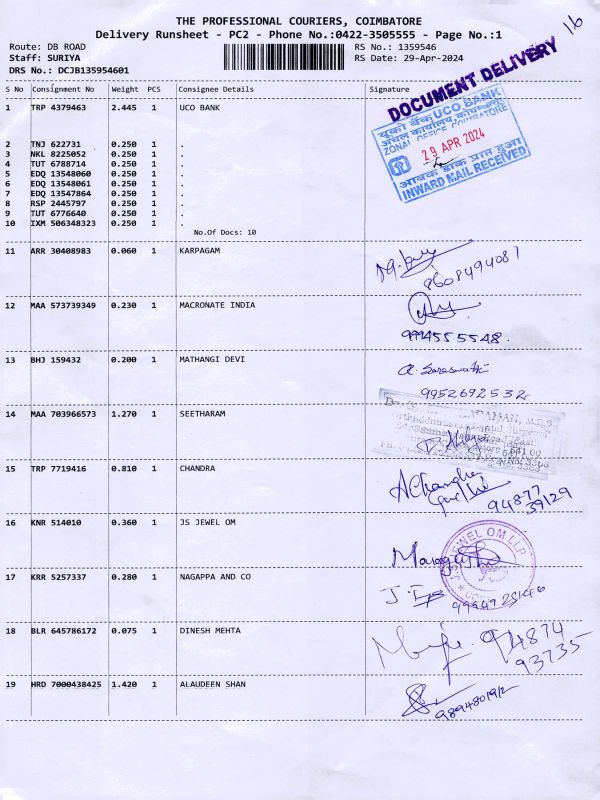 16
THE PROFESSIONAL COURIERS, COIMBATORE
Delivery Runsheet - PC2 - Phone No.:0422-3505555 - Page No.:1
Route: DB ROAD
Staff: SURIYA
DRS No.: DCJB135954601
RS No.: 1359546
RS Date: 29-Apr-2024
S No Consignment No Weight PCS Consignee Details Signature
DOCUMENT DELIVERY
1 TRP 4379463 2.445 1 UCO BANK
यूको बैंक UCO BANK
अंचल कार्यालय, कोयम्बत्तूर
ZONAL OFFICE COIMBATORE
29 APR 2024
आवक डाक प्राप्त हुआ
INWARD MAIL RECEIVED
2 TNJ 622731 0.250 1 .
3 NKL 8225052 0.250 1 .
4 TUT 6788714 0.250 1 .
5 EDQ 13548060 0.250 1 .
6 EDQ 13548061 0.250 1 .
7 EDQ 13547864 0.250 1 .
8 RSP 2445797 0.250 1 .
9 TUT 6776640 0.250 1 .
10 IXM 506348323 0.250 1 .
No.Of Docs: 10
11 ARR 30408983 0.060 1 KARPAGAM
8608494087
12 MAA 573739349 0.230 1 MACRONATE INDIA
9994555548.
13 BHJ 159432 0.200 1 MATHANGI DEVI
a. Saraswathi
9952692532
14 MAA 703966573 1.270 1 SEETHARAM
15 TRP 7719416 0.810 1 CHANDRA
A Chandra
94877
39129
16 KNR 514010 0.360 1 JS JEWEL OM
J.S. JEWEL OM LLP
17 KRR 5257337 0.280 1 NAGAPPA AND CO
18 BLR 645786172 0.075 1 DINESH MEHTA
94874
93735
19 HRD 7000438425 1.420 1 ALAUDEEN SHAN